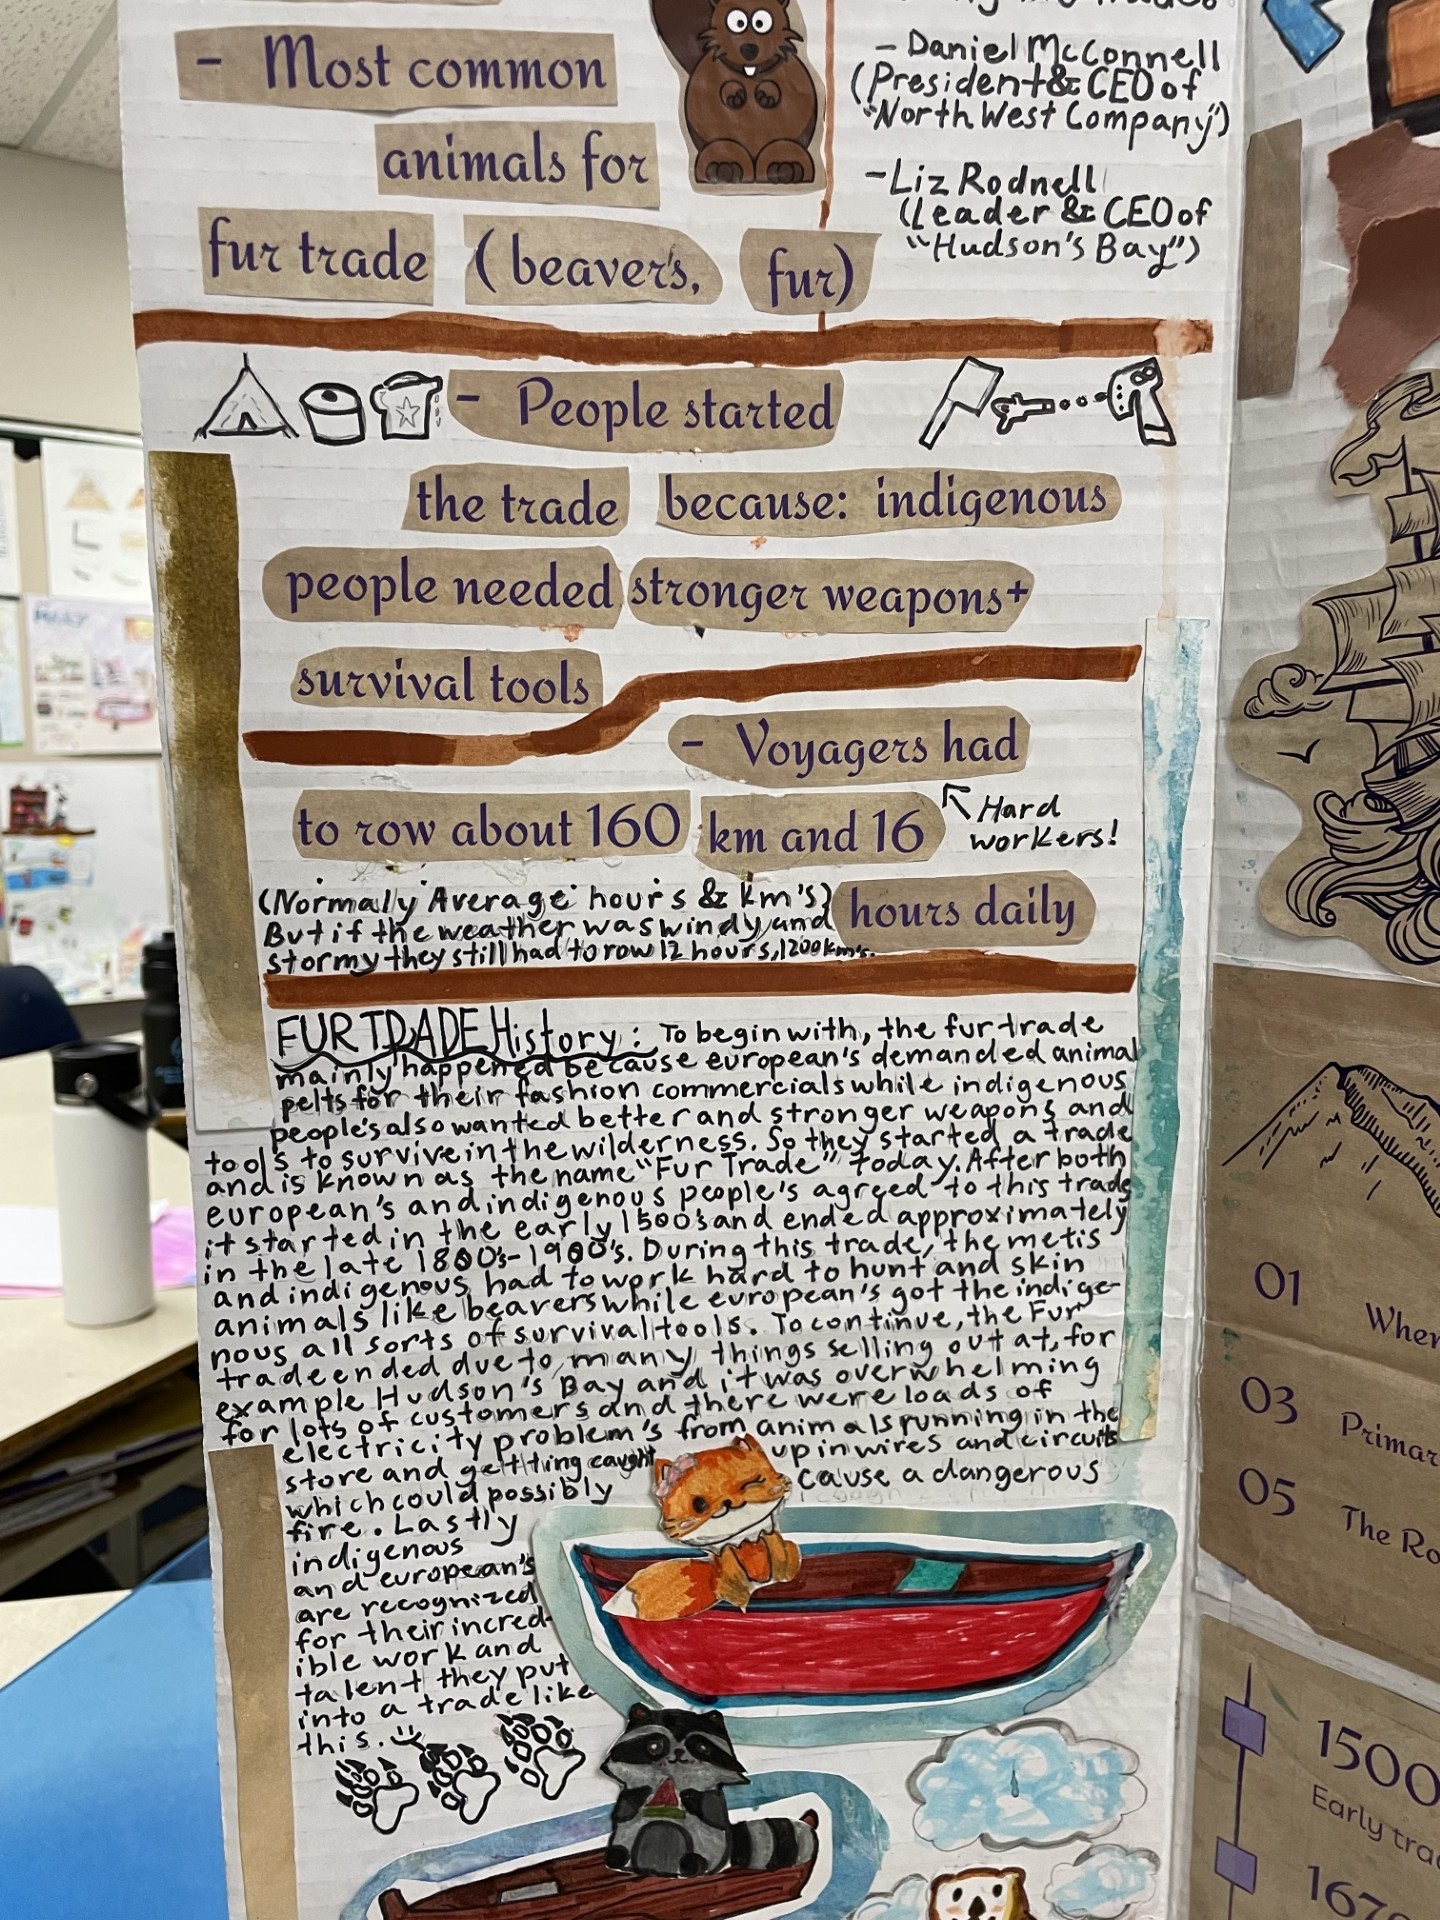 - Most common
animals for
fur trade ( beavers, fur)
- Daniel McConnell
(President & CEO of
"North West Company")
- Liz Rodnell
(Leader & CEO of
"Hudson's Bay")
- People started
the trade because: indigenous
people needed stronger weapons+
survival tools
- Voyagers had
to row about 160 km and 16
Hard
workers!
hours daily
(Normaly Average hour's & km's)
But if the weather was windy and
stormy they still had to row 12 hours, 1200km's.
FUR TRADE History: To begin with, the fur trade
mainly happened because european's demanded animal
pelts for their fashion commercials while indigenous
people's also wanted better and stronger weapons and
tools to survive in the wilderness. So they started a trade
and is known as the name "Fur Trade" today. After both
european's and indigenous people's agreed to this trade
it started in the early 1500's and ended approximately
in the late 1800's-1900's. During this trade, the metis
and indigenous had to work hard to hunt and skin
animals like beavers while european's got the indige-
nous all sorts of survival tools. To continue, the Fur
trade ended due to many things selling out at, for
example Hudson's Bay and it was overwhelming
for lots of customers and there were loads of
electricity problem's from animals running in the
store and getting caught up in wires and circuits
which could possibly cause a dangerous
fire. Lastly
indigenous
and european's
are recognized
for their incred-
ible work and
talent they put
into a trade like
this.
01
When
03
05
The Ro
1500
Early trad